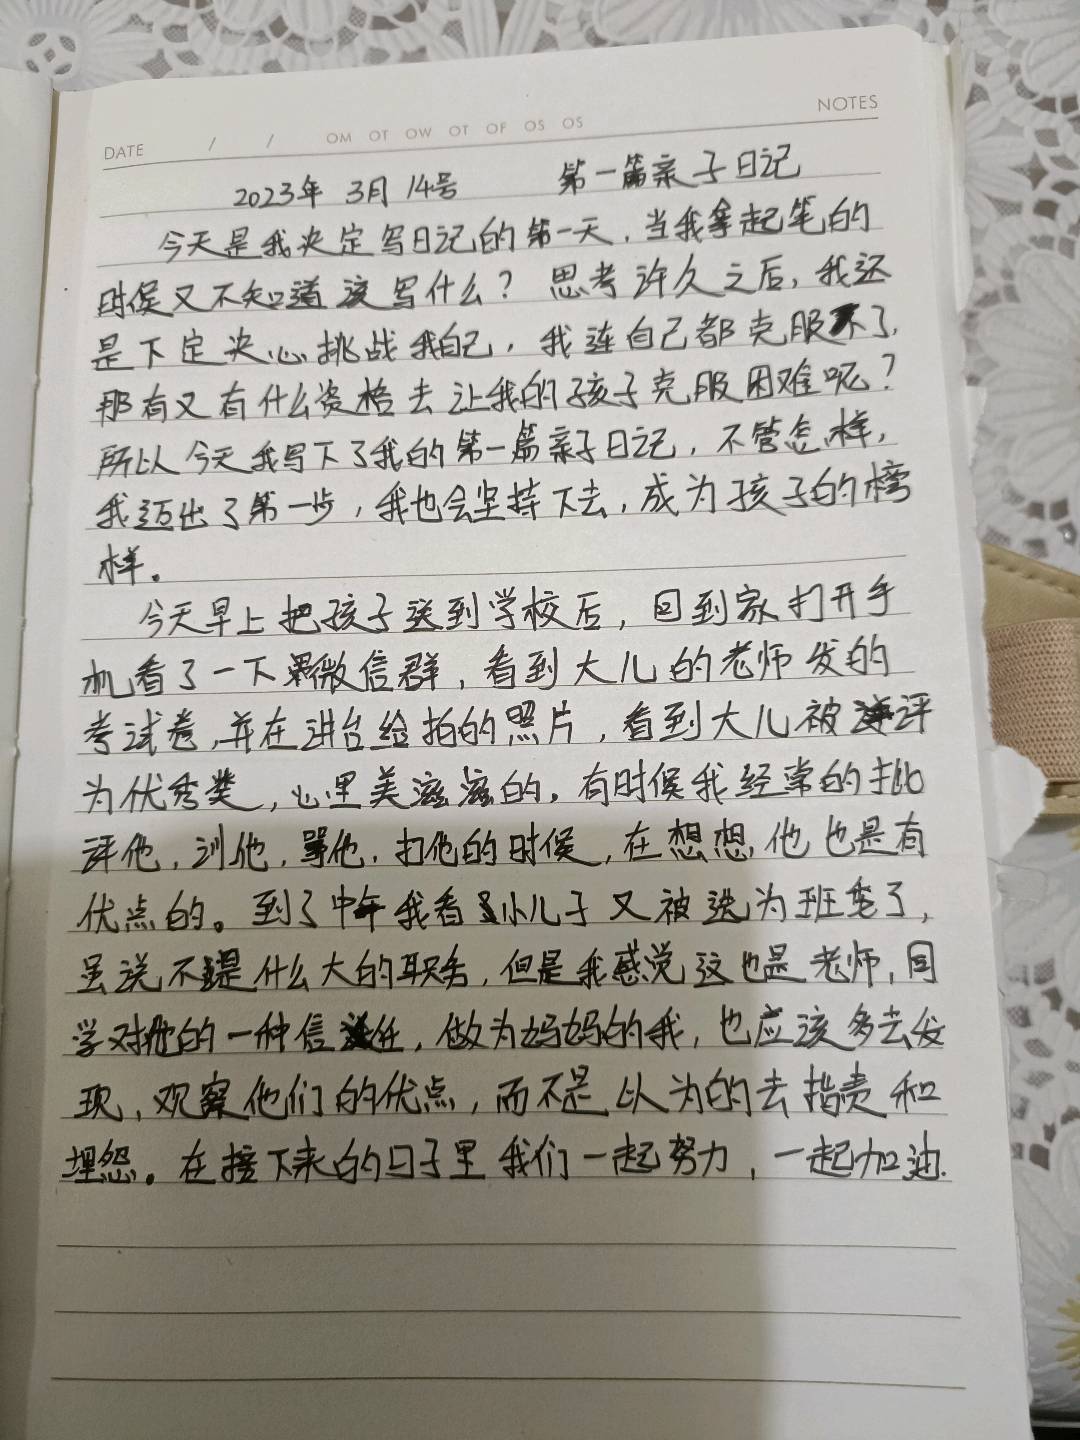 DATE / / OM OT OW OT OF OS OS NOTES
2023年 3月 14号 第一篇亲子日记
今天是我决定写日记的第一天，当我拿起笔的
时侯又不知道该写什么？思考许久之后，我还
是下定决心挑战我自己，我连自己都克服不了，
那有又有什么资格去让我的孩子克服困难呢？
所以今天我写下了我的第一篇亲子日记，不管怎样，
我迈出了第一步，我也会坚持下去，成为孩子的榜
样。
今天早上把孩子送到学校后，回到家打开手
机看了一下微信群，看到大儿的老师发的
考试卷，并在讲台给拍的照片，看到大儿被评
为优秀类，心里美滋滋的，有时候我经常的批
评他，训他，骂他，打他的时候，在想想，他也是有
优点的。到了中午我看到小儿子又被选为班委了，
虽说不是什么大的职务，但是我感觉这也是老师，同
学对他的一种信任，做为妈妈的我，也应该多去发
现，观察他们的优点，而不是以为的去指责和
埋怨。在接下来的日子里我们一起努力，一起加油.